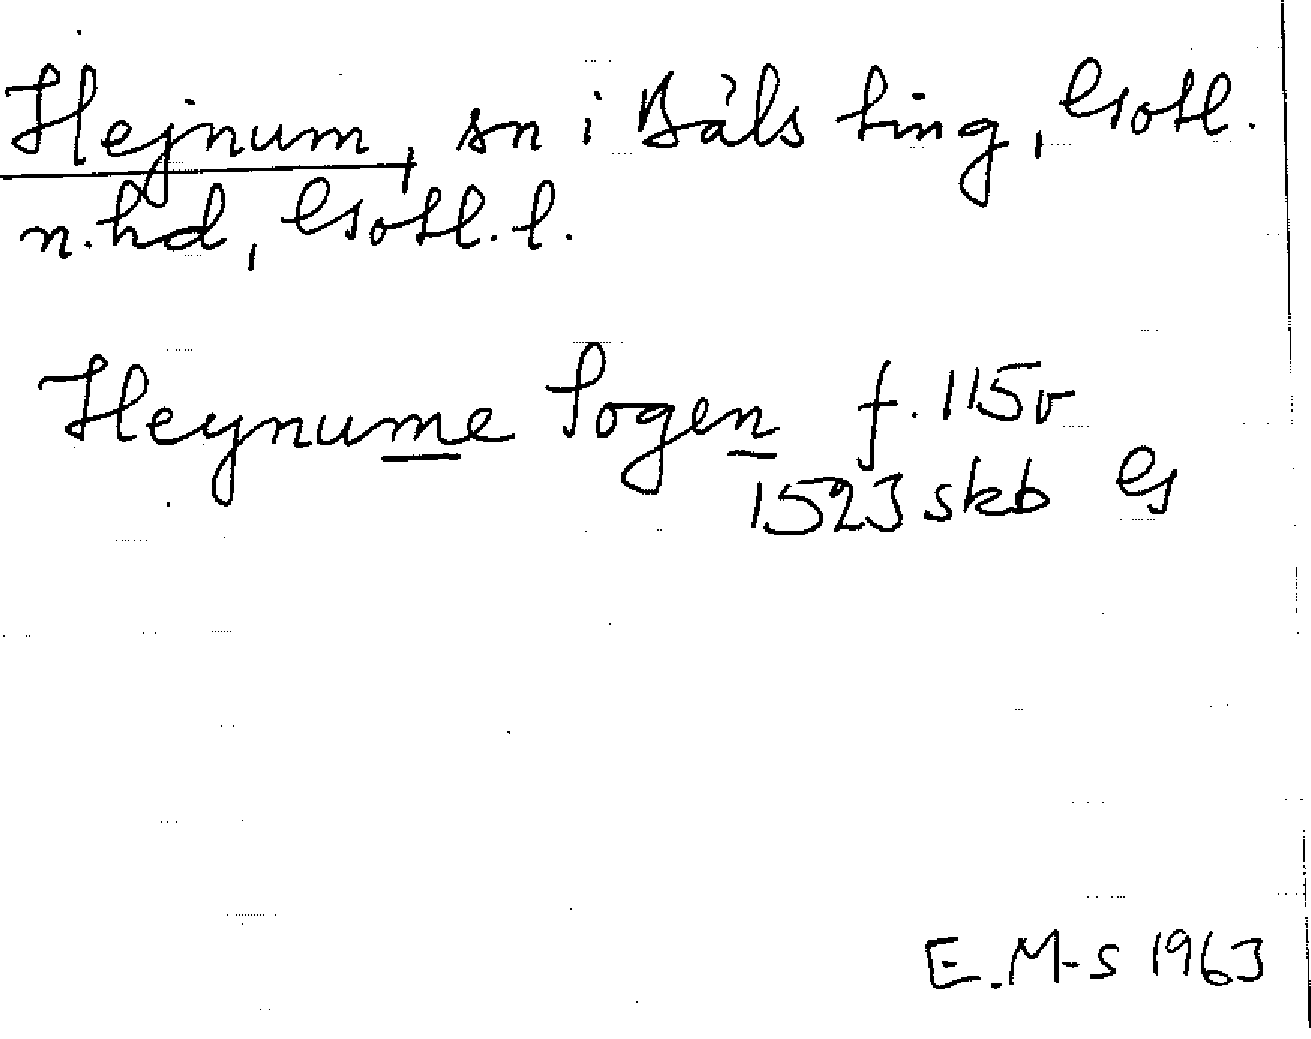 Hejnum, sn i Bäls ting, Gotl.
n. hd, Gotl. l.
Heynume Sogen f. 115v
1523 skb G
E. M-s 1963